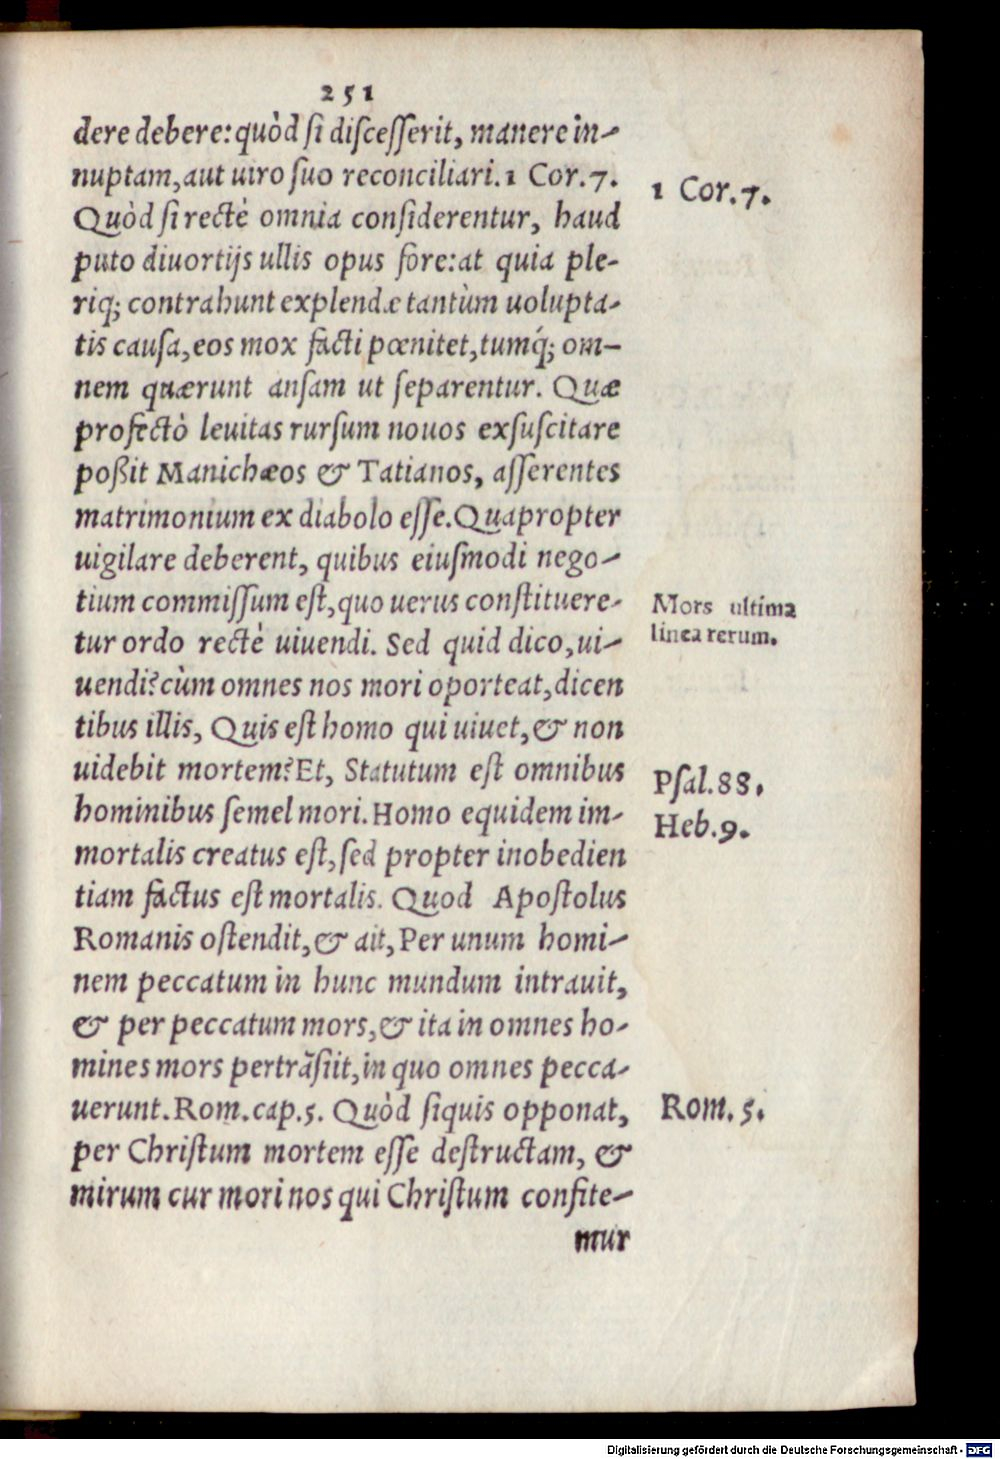 251
dere debere: quòd si discesserit, manere in-
nuptam, aut uiro suo reconciliari. 1 Cor. 7.
1 Cor. 7.
Quòd si rectè omnia considerentur, haud
puto diuortijs ullis opus fore: at quia ple-
riq; contrahunt explendæ tantùm uolupta-
tis causa, eos mox facti pœnitet, tumq́; om-
nem quærunt ansam ut separentur. Quæ
profectò leuitas rursum nouos exsuscitare
poßit Manichæos & Tatianos, asserentes
matrimonium ex diabolo esse. Quapropter
uigilare deberent, quibus eiusmodi nego-
tium commissum est, quo uerus constituere-
Mors ultima
linea rerum.
tur ordo rectè uiuendi. Sed quid dico, ui-
uendi? cùm omnes nos mori oporteat, dicen
tibus illis, Quis est homo qui uiuet, & non
uidebit mortem? Et, Statutum est omnibus
Psal. 88.
hominibus semel mori. Homo equidem im-
Heb. 9.
mortalis creatus est, sed propter inobedien
tiam factus est mortalis. Quod Apostolus
Romanis ostendit, & ait, Per unum homi-
nem peccatum in hunc mundum intrauit,
& per peccatum mors, & ita in omnes ho-
mines mors pertrãsiit, in quo omnes pecca-
uerunt. Rom. cap. 5. Quòd siquis opponat,
Rom. 5.
per Christum mortem esse destructam, &
mirum cur mori nos qui Christum confite-
mur
Digitalisierung gefördert durch die Deutsche Forschungsgemeinschaft - DFG